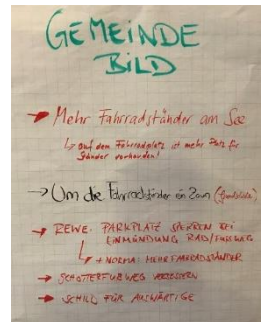 GEMEINDE
BILD
→ Mehr Fahrradständer am See
↳ auf dem Fahrradplatz ist mehr Platz für
Ständer vorhanden!
→ Um die Fahrradständer ein Zaun
→ REWE: PARKPLATZ SPERREN BEI
EINMÜNDUNG RAD/FUSSWEG
↳ + NORMA: MEHR FAHRRADSTÄNDER
→ SCHOTTERFUßWEG VERBESSERN
→ SCHILD FÜR AUSWÄRTIGE